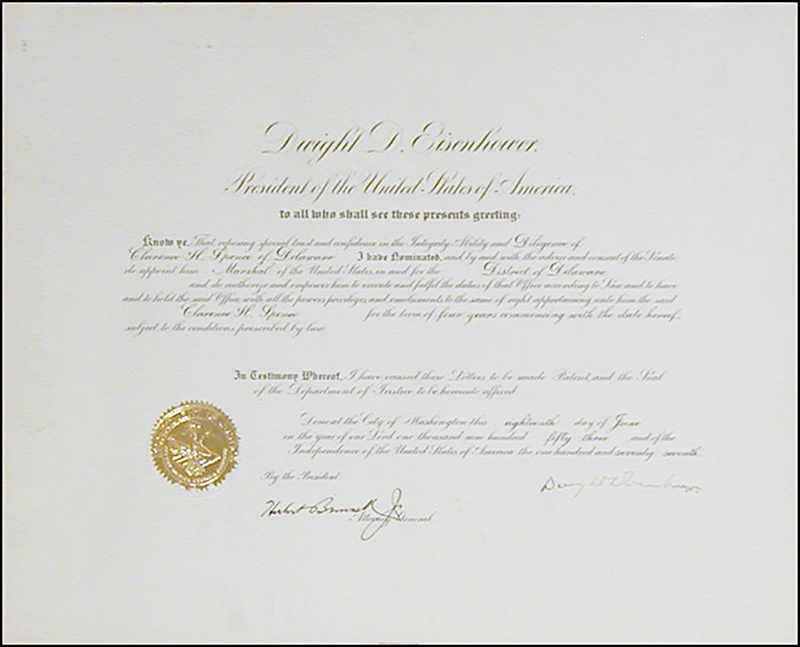 Dwight D. Eisenhower.
President of the United States of America.
to all who shall see these presents greeting:
Know ye, That reposing special trust and confidence in the Integrity Ability and Diligence of
Clarence H. Spence of Delaware I have Nominated, and by and with the advice and consent of the Senate
do appoint him Marshal of the United States in and for the District of Delaware
and do authorize and empower him to execute and fulfil the duties of that Office according to Law and to have
and to hold the said Office with all the powers privileges and emoluments to the same of right appertaining unto him the said
Clarence H. Spence for the term of four years, commencing with the date hereof,
subject to the conditions prescribed by law
In Testimony Whereof, I have caused these Letters to be made Patent, and the Seal
of the Department of Justice to be hereunto affixed
Done at the City of Washington this eighteenth day of June
in the year of our Lord one thousand nine hundred fifty three and of the
Independence of the United States of America the one hundred and seventy-seventh.
By the President:
Dwight D Eisenhower
Herbert Brownell Jr.
Attorney General